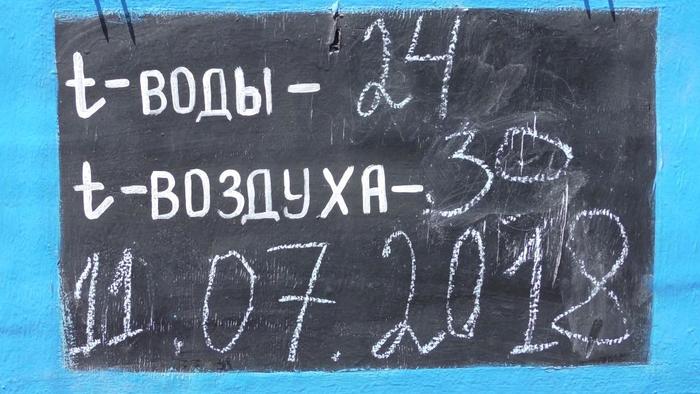 t-воды- 24
t-воздуха-30
11.07.2018